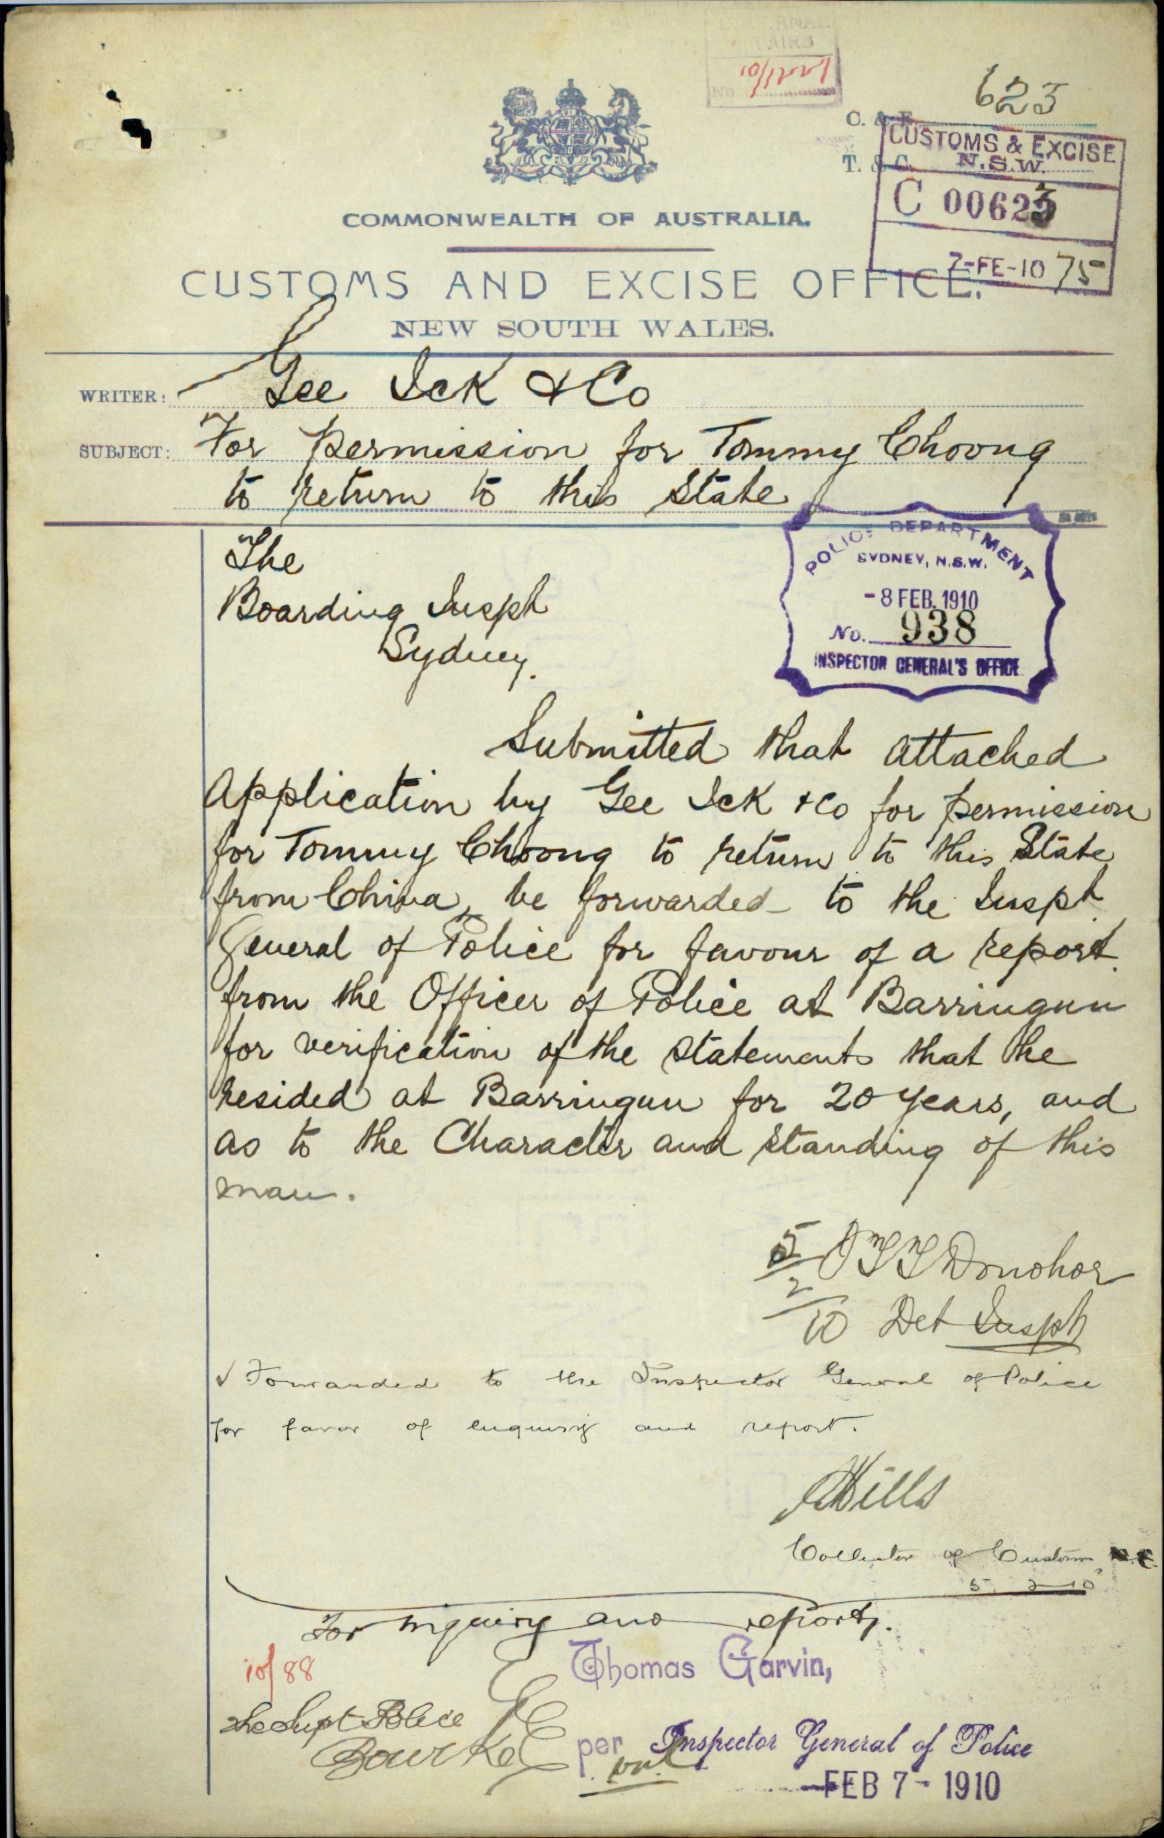 10/1221
623
C. & E.
T. & C.
CUSTOMS & EXCISE
N.S.W.
C 00623
7-FE-10 75
COMMONWEALTH OF AUSTRALIA.
CUSTOMS AND EXCISE OFFICE.
NEW SOUTH WALES.
WRITER: Gee Ick & Co
SUBJECT: For permission for Tommy Choong
to return to this State
The
Boarding Inspr
Sydney.
POLICE DEPARTMENT
SYDNEY, N.S.W.
-8 FEB. 1910
No. 938
INSPECTOR GENERAL'S OFFICE
Submitted that attached
application by Gee Ick & Co for permission
for Tommy Choong to return to this State
from China, be forwarded to the Inspr.
General of Police for favour of a report
from the Officer of Police at Barringun
for verification of the statements that he
resided at Barringun for 20 years, and
as to the Character and standing of this
man.
5/2/10 Donohoe
Det Inspr
Forwarded to the Inspector General of Police
for favor of enquiry and report.
Mills
Collector of Customs
5 2 10
For inquiry and report.
10/88
Thomas Garvin,
The Supt Police
Bourke
per Inspector General of Police
FEB 7-1910